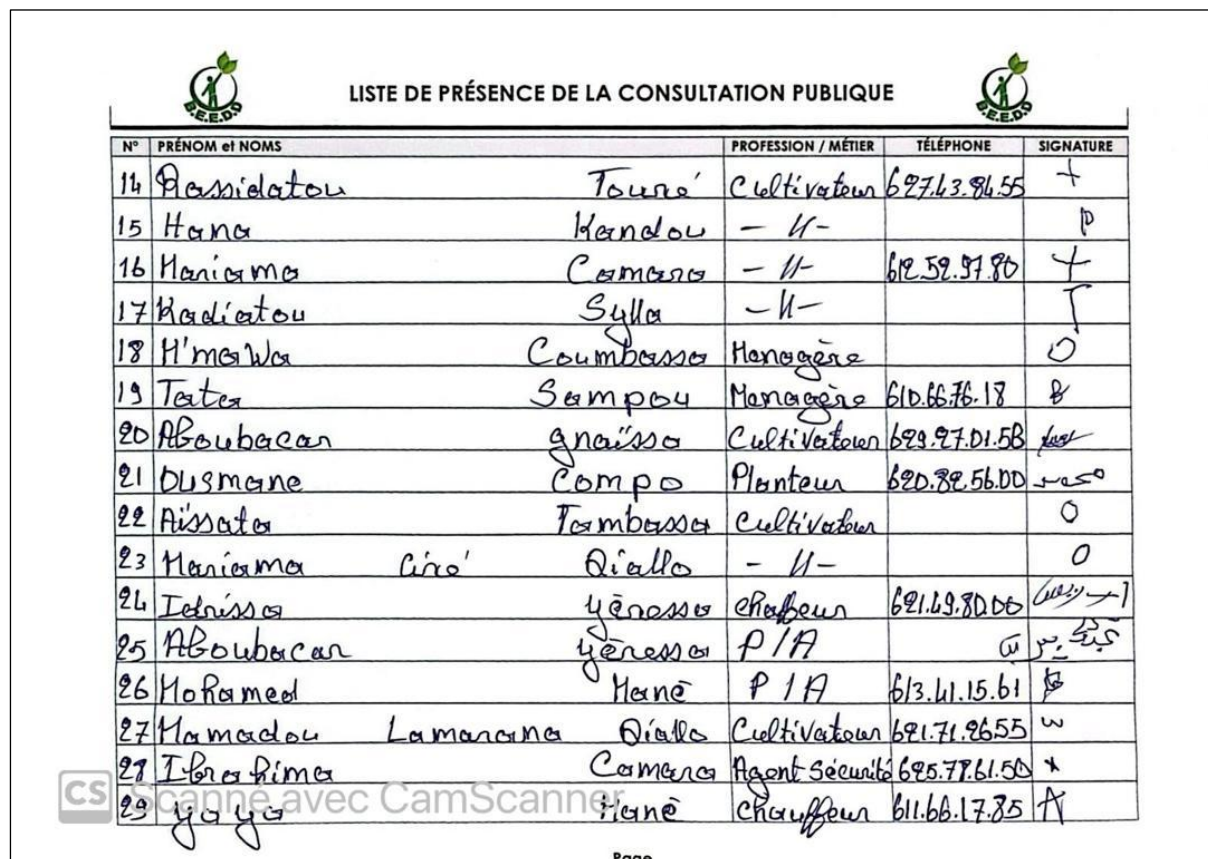 B.E.E.D.D
LISTE DE PRÉSENCE DE LA CONSULTATION PUBLIQUE
B.E.E.D.D
N° PRÉNOM et NOMS PROFESSION / MÉTIER TÉLÉPHONE SIGNATURE
14 Rassidatou Touré Cultivateur 627.43.84.55 +
15 Hana Kandou - 11 -
16 Mariama Camara - 11 - 612.52.97.80 +
17 Kadiatou Sylla - 11 -
18 M'mawa Coumbassa Menagère O
19 Tata Sampou Menagère 610.66.76.18
20 Aboubacar gnaïssa Cultivateur 629.27.01.58
21 Ousmane Compo Planteur 620.82.56.00
22 Aïssata Tambassa Cultivateur O
23 Mariama Ciré Diallo - 11 - O
24 Idrissa yéressa chaffeur 621.49.80.00
25 Aboubacar yéressa P/A
26 Mohamed Mané P/A 613.41.15.61
27 Mamadou Lamarana Diallo Cultivateur 621.71.2655
28 Ibrahima Camara Agent Sécurité 625.78.61.50
29 yaya Mané chauffeur 611.66.17.85 A
CS Scanné avec CamScanner
Page